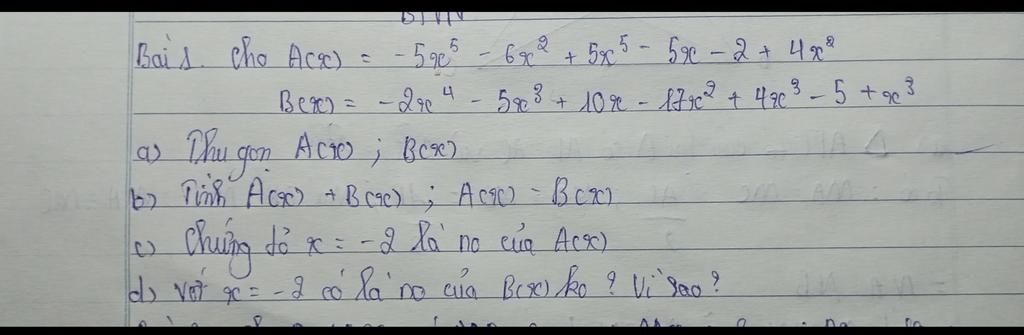 BTVN
Bài 1. Cho A(x) = -5x⁵ - 6x² + 5x⁵ - 5x - 2 + 4x²
B(x) = -2x⁴ - 5x³ + 10x - 17x² + 4x³ - 5 + x³
a) Thu gọn A(x) ; B(x)
b) Tính A(x) + B(x) ; A(x) - B(x)
c) Chứng tỏ x = -2 là no của A(x)
d) với x = -2 có là no của B(x) ko ? Vì sao ?